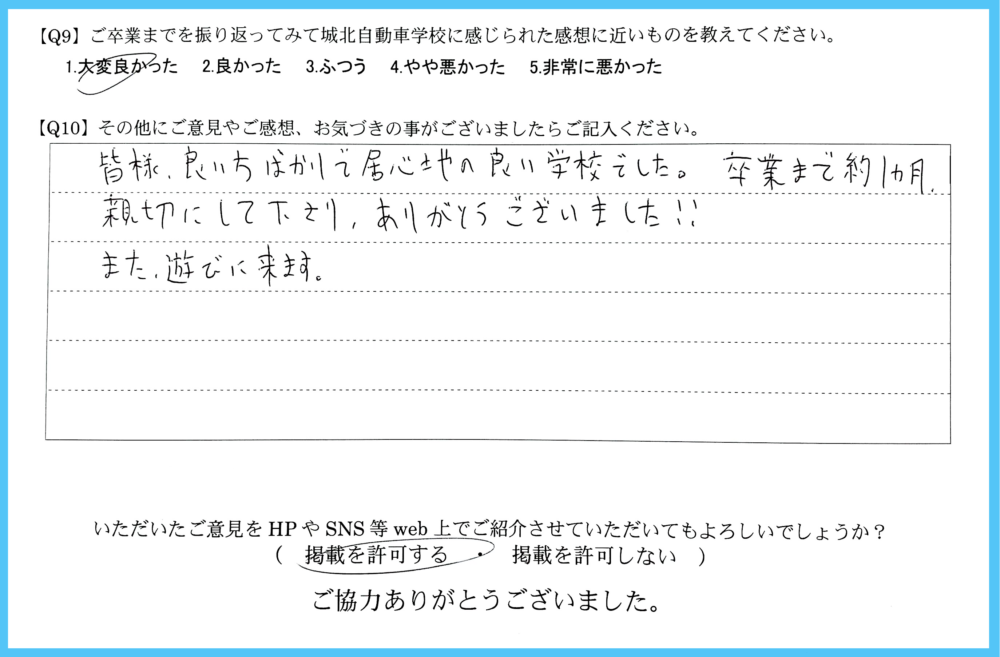 【Q9】ご卒業までを振り返ってみて城北自動車学校に感じられた感想に近いものを教えてください。
1.大変良かった 2.良かった 3.ふつう 4.やや悪かった 5.非常に悪かった
【Q10】その他にご意見やご感想、お気づきの事がございましたらご記入ください。
皆様、良い方ばかりで居心地の良い学校でした。 卒業まで約1カ月、
親切にして下さり、ありがとうございました!!
また、遊びに来ます。
いただいたご意見をHPやSNS等web上でご紹介させていただいてもよろしいでしょうか?
( 掲載を許可する ・ 掲載を許可しない )
ご協力ありがとうございました。